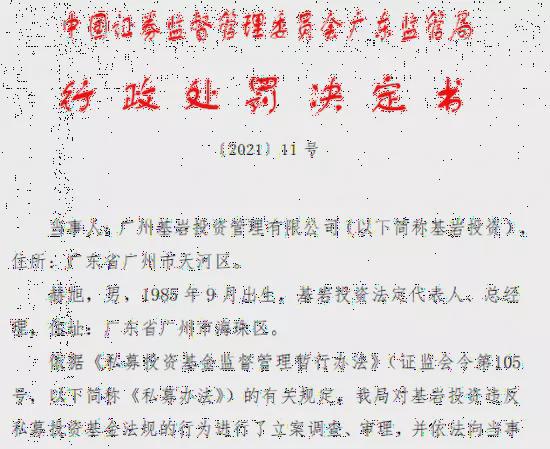 中国证券监督管理委员会广东监管局
行政处罚决定书
〔2021〕11 号
当事人：广州基岩投资管理有限公司（以下简称基岩投资），
住所：广东省广州市天河区。
旭，男，1985 年 9 月出生，基岩投资法定代表人、总经
理，住址：广东省广州市海珠区。
依据《私募投资基金监督管理暂行办法》（证监会令第105
号，以下简称《私募办法》）的有关规定，我局对基岩投资违反
私募投资基金法规的行为进行了立案调查、审理，并依法向当事